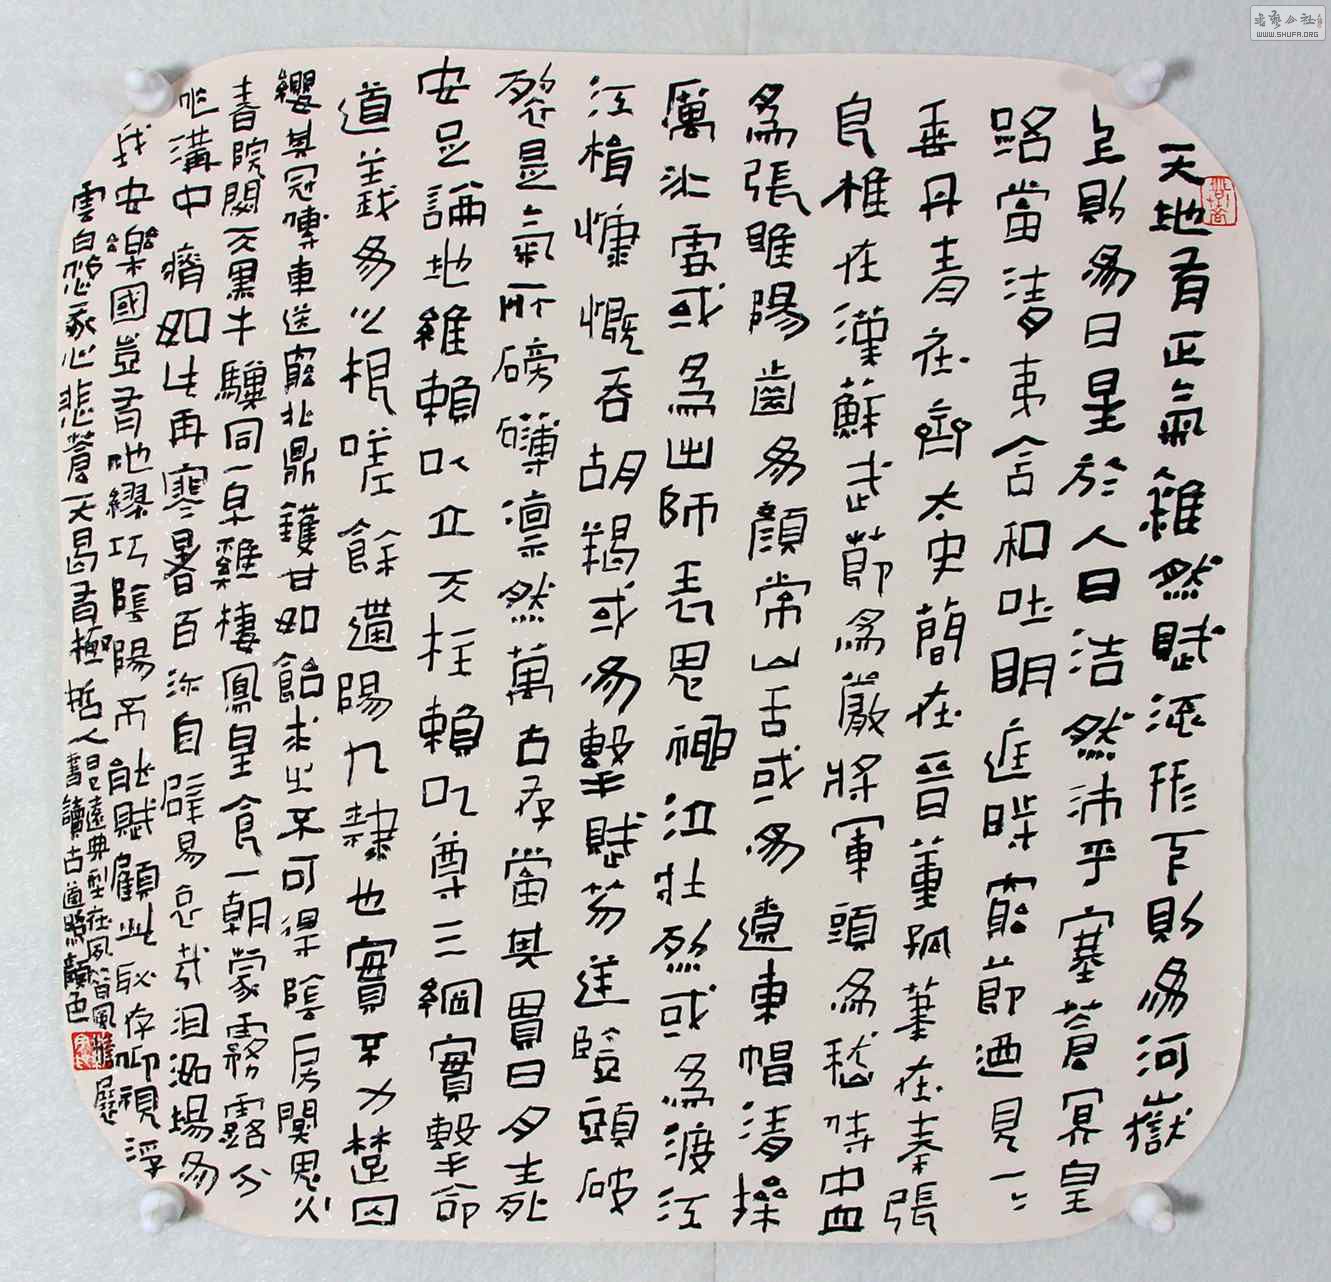 天地有正氣雜然賦流形下則為河嶽
上則為日星於人曰浩然沛乎塞蒼冥皇
路當清夷含和吐明庭時窮節迺見一〻
垂丹青在齊太史簡在晉董狐筆在秦張
良椎在漢蘇武節為嚴將軍頭為嵇侍中血
為張睢陽齒為顏常山舌或為遼東帽清操
厲冰雪或為出師表鬼神泣壯烈或為渡江
江楫慷慨吞胡羯或為擊賊笏逆豎頭破
裂是氣所磅礴凜然萬古存當其貫日月生死
安足論地維賴以立天柱賴以尊三綱實繫命
道義為之根嗟餘遘陽九隸也實不力楚囚
纓其冠傳車送窮北鼎鑊甘如飴求之不可得陰房闃鬼火
春院閟天黑牛驥同一皁雞棲鳳皇食一朝蒙霧露分
作溝中瘠如此再寒暑百沴自辟易哀哉沮洳場為
我安樂國豈有他繆巧陰陽不能賊顧此耿存仰視浮
雲白悠我心悲蒼天曷有極哲人日已遠典型在夙昔風檐展
書讀古道照顏色
书艺公社
WWW.SHUFA.ORG